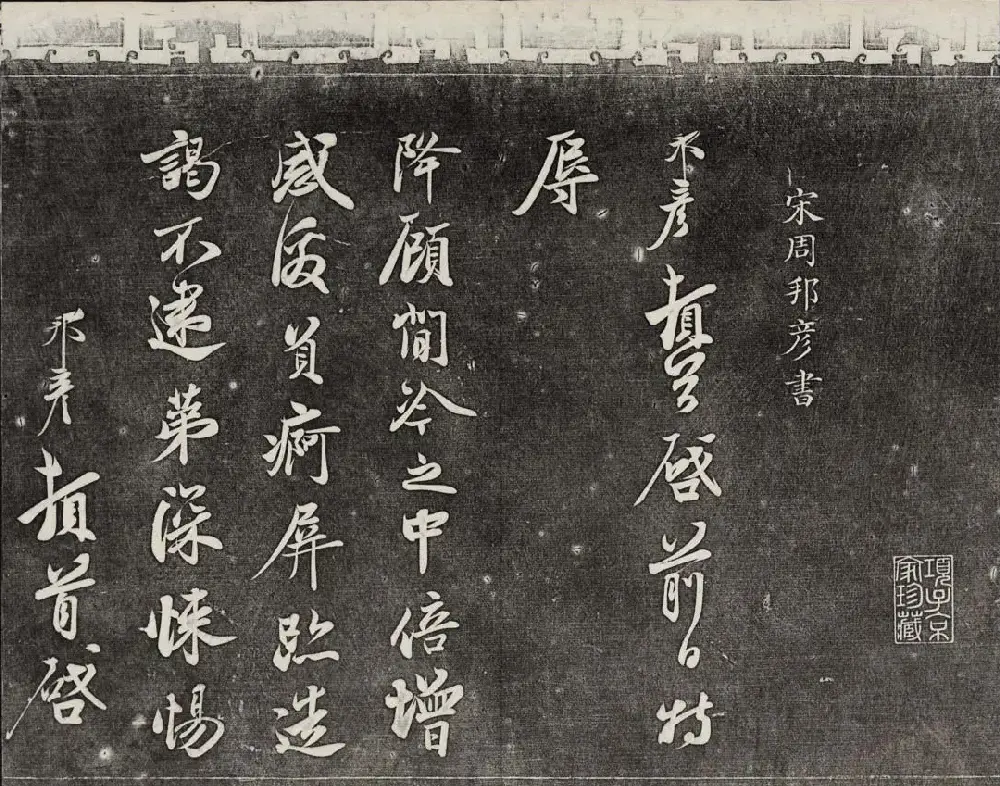 宋周邦彥書
邦彥頓首啓前日特
辱
降顧閒冷之中倍增
感負痾屏跡造
謁不逮第深悚惕
邦彥頓首啓
項子京
家珍藏